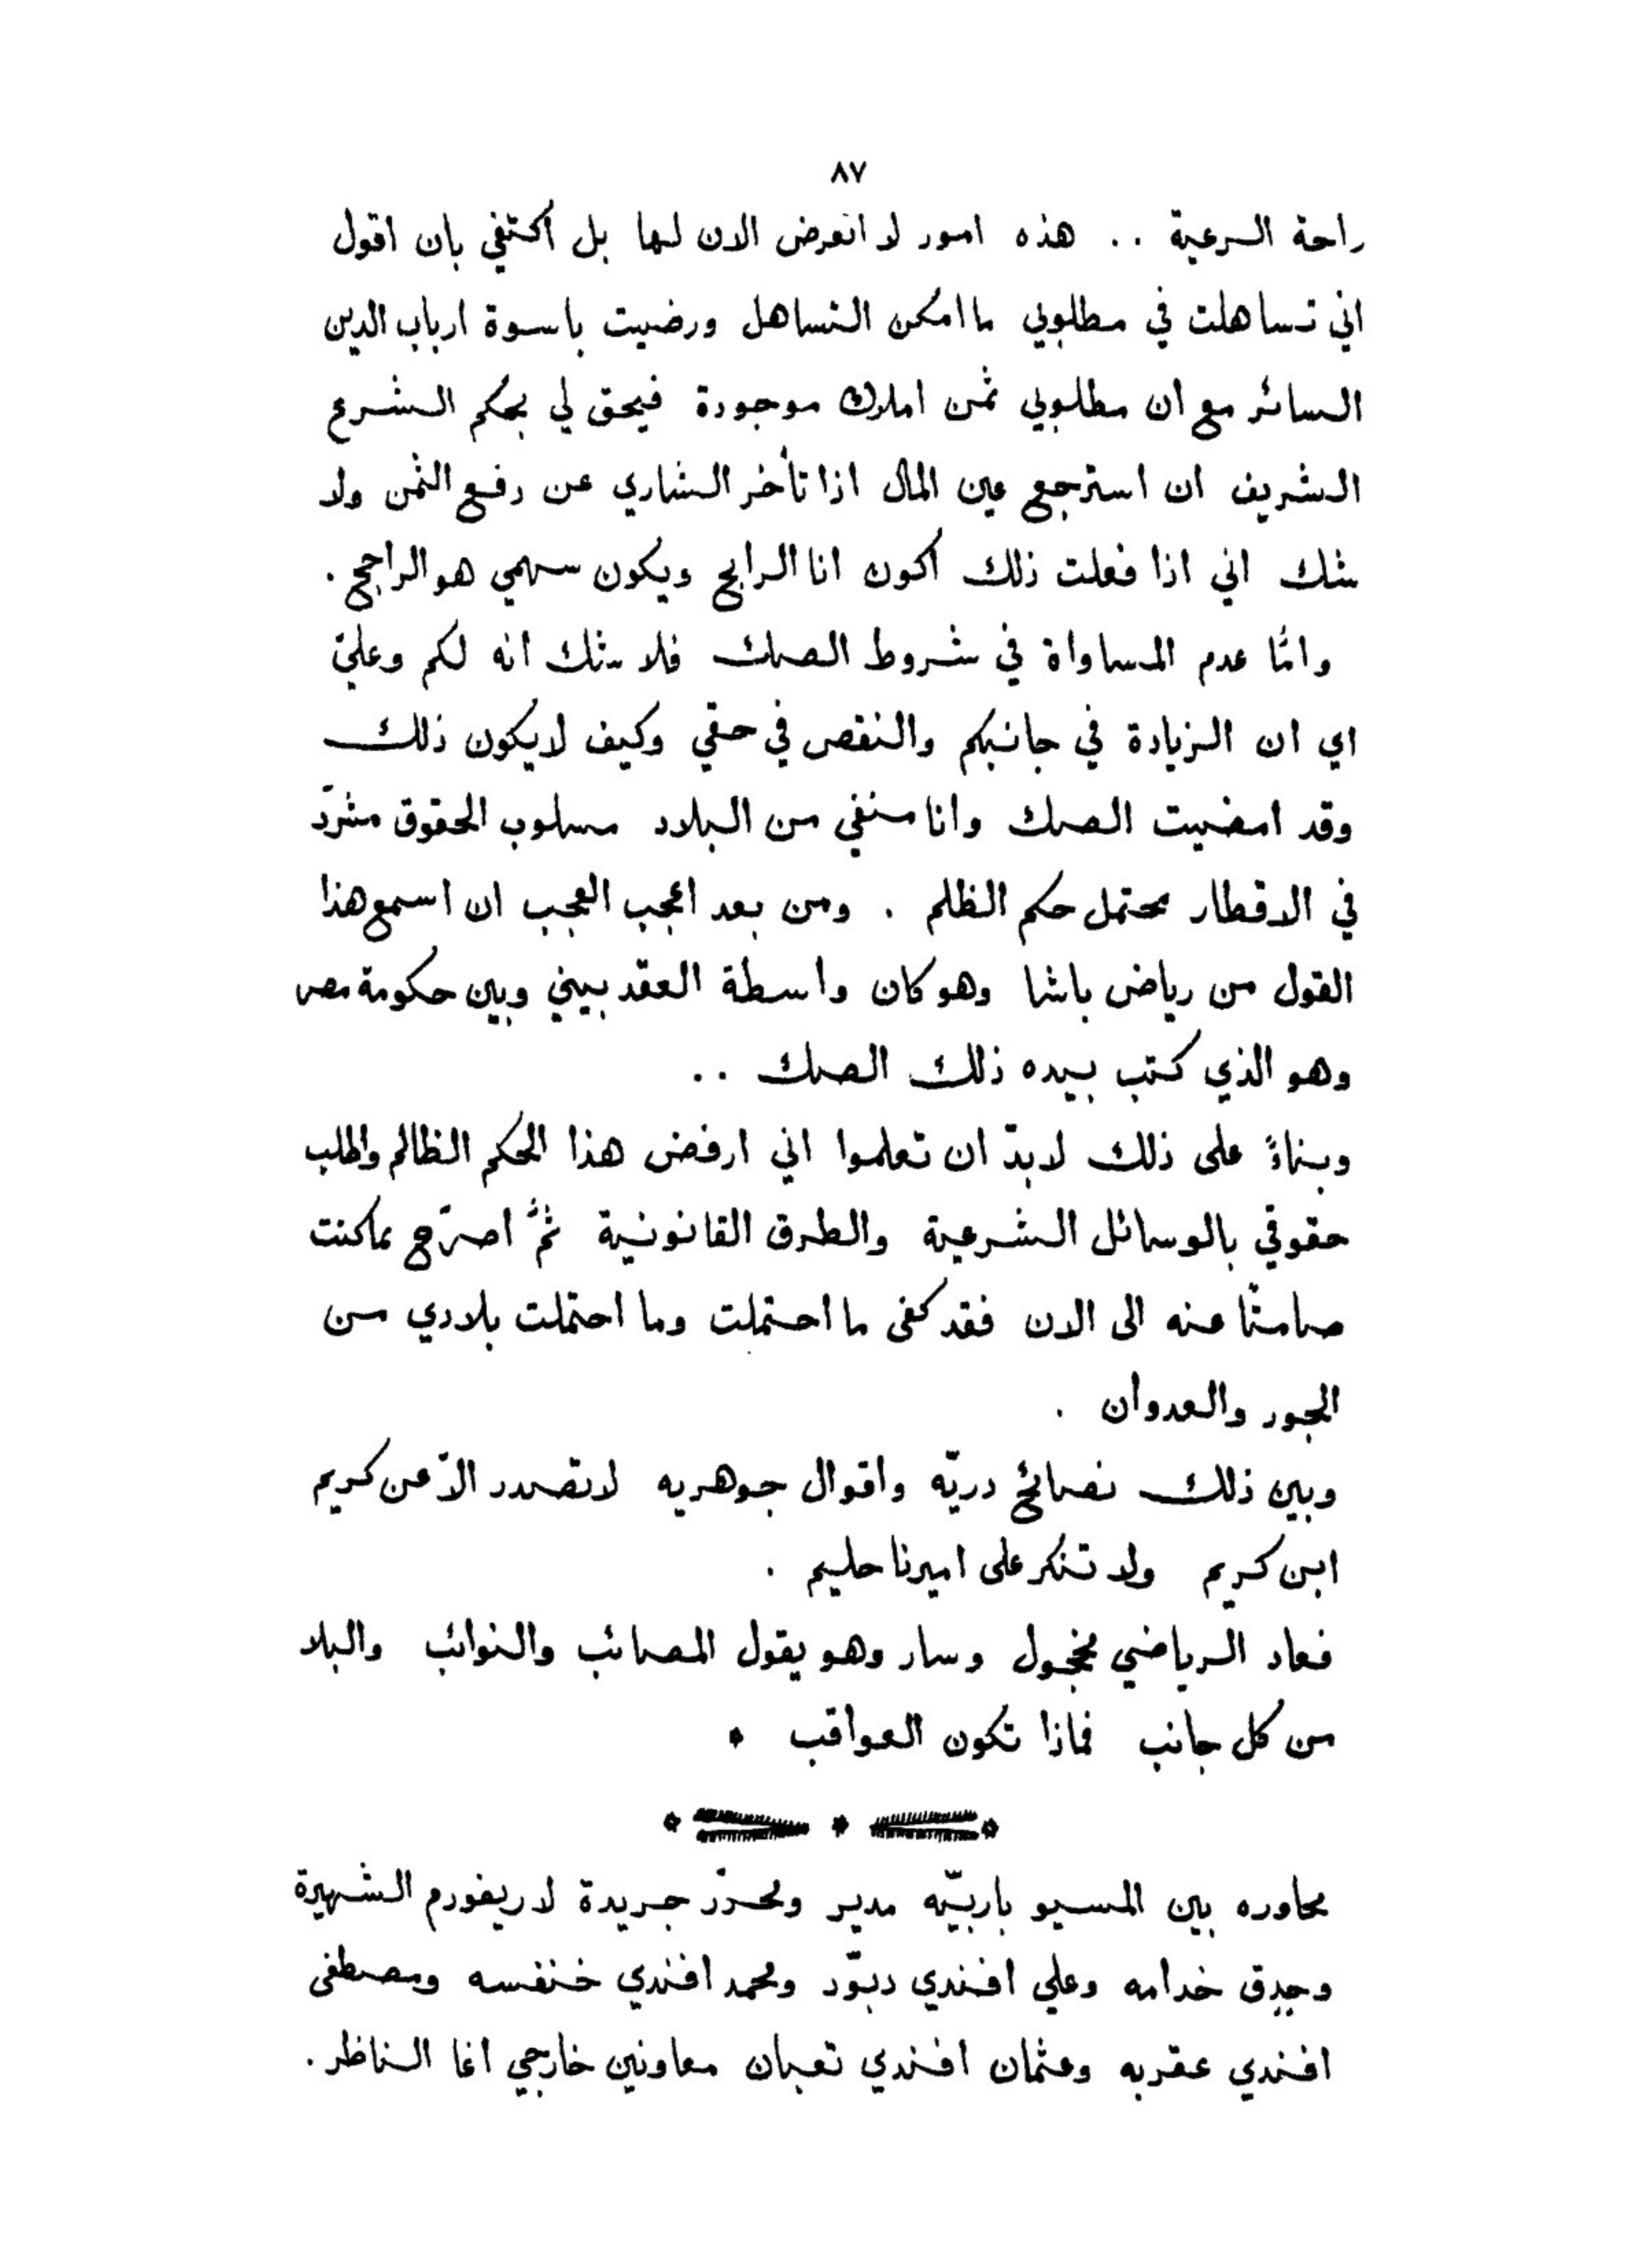 ٨٧
راحة الرعية .. هذه امور لا اتعرض الان لها بل اكتفي بان اقول
اني تساهلت في مطلوبي ما امكن التساهل ورضيت باسوة ارباب الدين
السائر مع ان مطلوبي ثمن املاك موجودة فيحق لي بحكم الشرع
الشريف ان استرجع عين المال اذا تأخر الشاري عن دفع الثمن ولا
شك اني اذا فعلت ذلك اكون انا الرابح ويكون سهمي هو الراجح .
وامّا عدم المساواة في شروط الصك فلا شك انه لكم وعليّ
اي ان الزيادة في جانبكم والنقص في حقي وكيف لا يكون ذلك
وقد امضيت الصك وانا منفي من البلاد مسلوب الحقوق مشرّد
في الاقطار محتمل حكم الظلم . ومن بعد اعجب العجب ان اسمع هذا
القول من رياض باشا وهو كان واسطة العقد بيني وبين حكومة مصر
وهو الذي كتب بيده ذلك الصك ..
وبناءً على ذلك لا بدّ ان تعلموا اني ارفض هذا الحكم الظالم واطلب
حقوقي بالوسائل الشرعية والطرق القانونية ثمَّ اصرّح بما كنت
صامتًا عنه الى الان فقد كفى ما احتملت وما احتملت بلادي من
الجور والعدوان .
وبين ذلك نصائح دريّه واقوال جوهريه لا تصدر الّا عن كريم
ابن كريم ولا تنكر على اميرنا حليم .
فعاد الرياضي مخجول وسار وهو يقول المصائب والنوائب والبلا
من كل جانب فماذا تكون العواقب *
محاوره بين المسيو باربيّه مدير ومحرّر جريدة لا ريفورم الشهيرة
وجدق خدامه وعلي افندي دبّور ومحمد افندي خنفسه ومصطفى
افندي عقربه وعثمان افندي تعبان معاونين خارجي اغا الناظر .